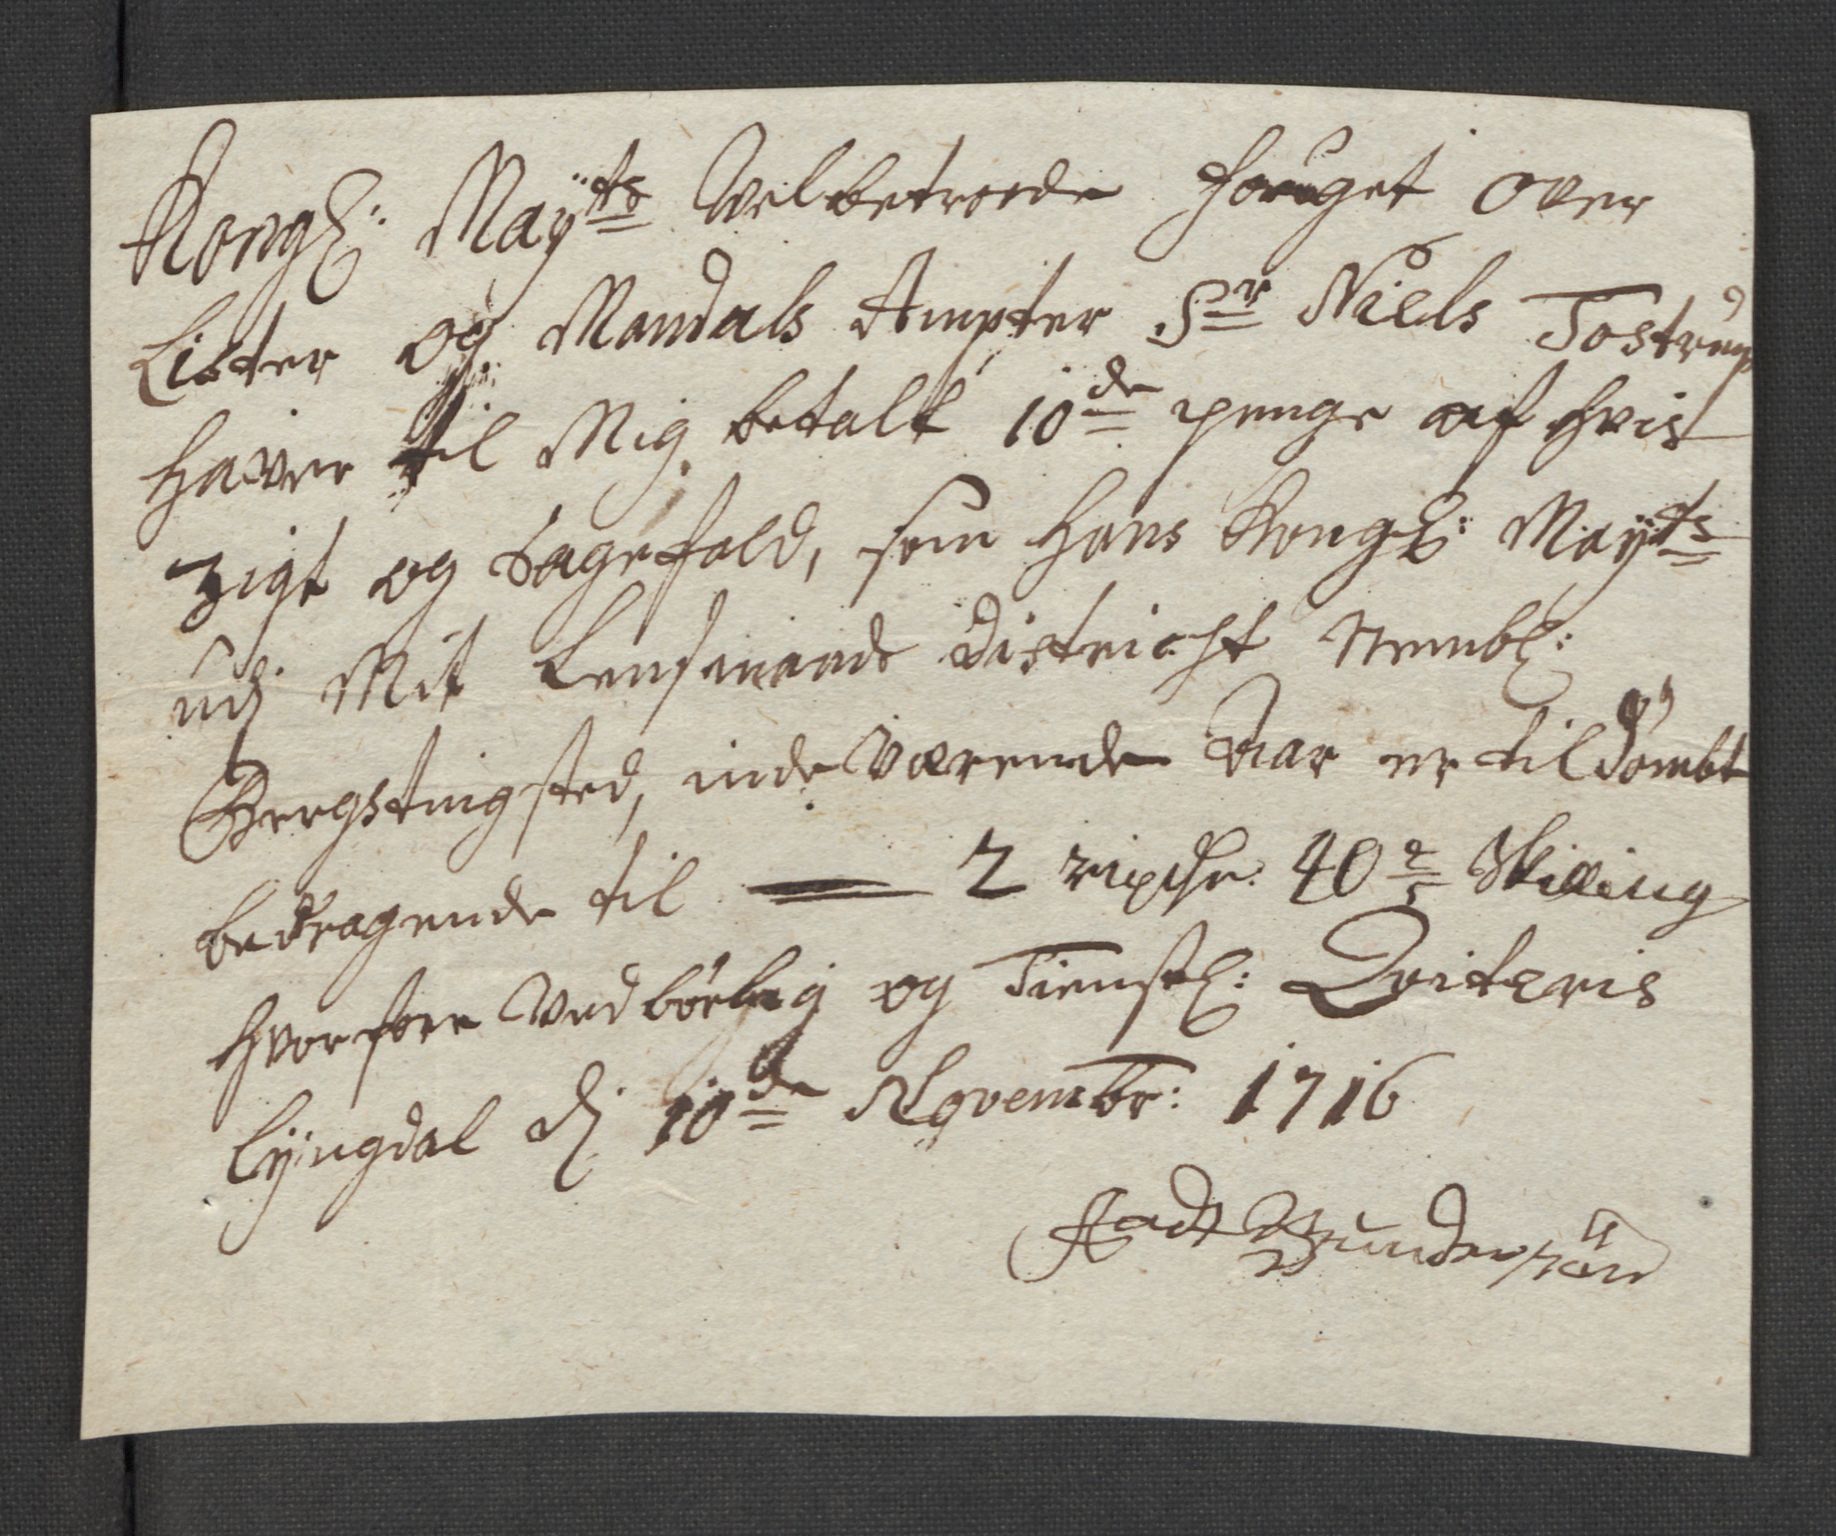 Kongl: Maÿts Velbetroede fouget over
Lister og Mandals Ampter Sr Niels Tostrup
haver til Mig betalt 10de penge af hvis
zigt og Sagefald, som Hans Kongl: Maÿts
udj Mit Lensmands District Nembl:
Bergstingsted, indeværende Aar er tildømbt
bedragende til — 2 rixdlr: 40 2/5 Skilling
hvorfore Vedbørlig og Tienstl: Qviteris
Lÿngdal dj 10de Novembr: 1716